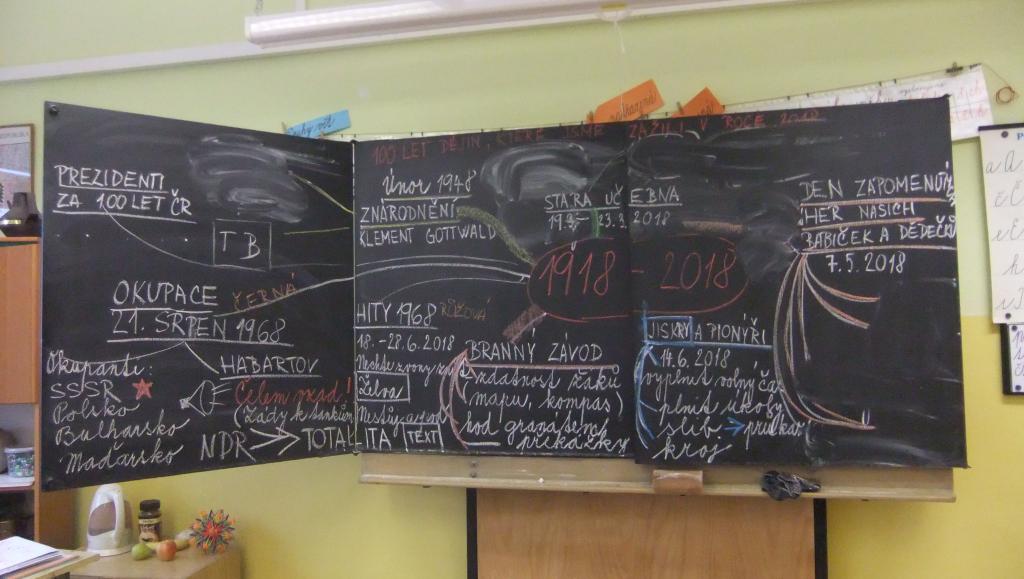 100 LET DĚJIN, KTERÉ JSME ZAŽILI V ROCE 2018
PREZIDENTI
ZA 100 LET ČR
T B
OKUPACE ČERNÁ
21. SRPEN 1968
Okupanti:
SSSR
Polsko
Bulharsko
Maďarsko
HABARTOV
Čelem vzad!
(Zády k tankům
NDR TOTAL
ITA
Únor 1948
ZNÁRODNĚNÍ
KLEMENT GOTTWALD
STARÁ UČEBNA
19.3.-23.3.2018
1918 - 2018
HITY 1968 RŮŽOVÁ
18.-28.6.2018
Nechte zvony znít
Želva
TEXT
BRANNÝ ZÁVOD
zdatnost žáků
mapu, kompas)
hod granátem
překážky
JISKRY A PIONÝŘI
14.6.2018
vyplnit volný čas
plnit úkoly
slib
kroj
DEN ZAPOMENUTÝ
HER NAŠICH
BABIČEK A DĚDEČK
7.5.2018